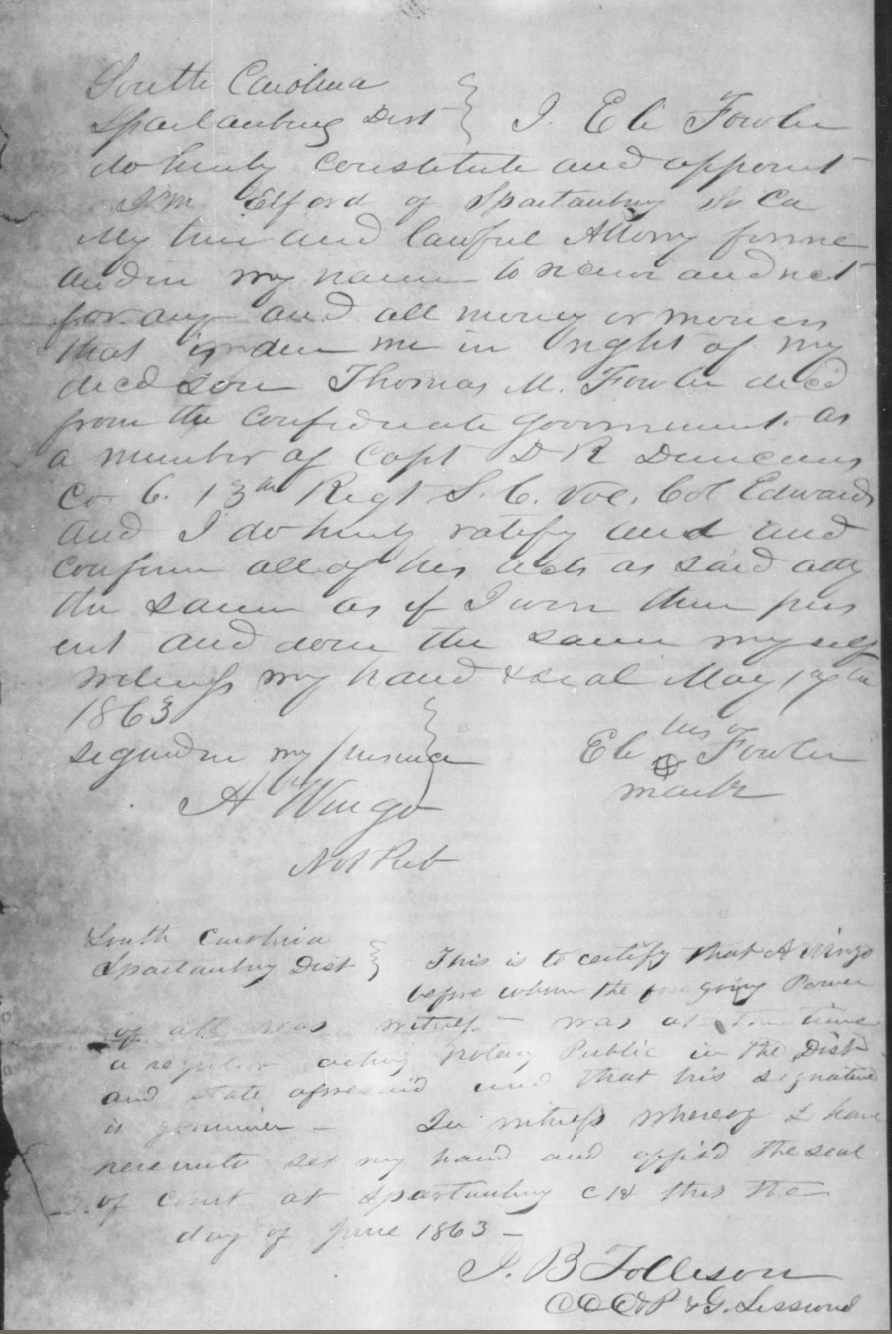 South Carolina
Spartanburg Dist } I. Eli Fowler
do hereby constitute and appoint
J.M. Elford of Spartanburg So Ca
My true and lawful Attorny for me
and in my name to receive and rect
for any and all money or moneis
that is due me in right of my
decd son Thomas M. Fowler decd
from the confederate government as
a member of Capt D R Duncans
Co C. 13th Regt S. C. Vol. Col Edwards
and I do hereby ratify and and
confirm all of his acts as said atty
the same as if I were then pres
ent and done the same myself
witness my hand & seal May 19th
1863
signed in my presence } Eli his Fowler
mark
A Wingo
Not Pub
South Carolina
Spartanburg Dist } This is to certify that A Wingo
before whom the foregoing Power
of atty was witness was at the time
a regular acting Notary Public in the Dist
and state aforesaid and that his signature
is genuine – In witness whereof I have
hereunto set my hand and affixd the seal
of court at Spartanburg C H this the
day of June 1863 –
J. B Tolleson
CCCP & G. Sessions